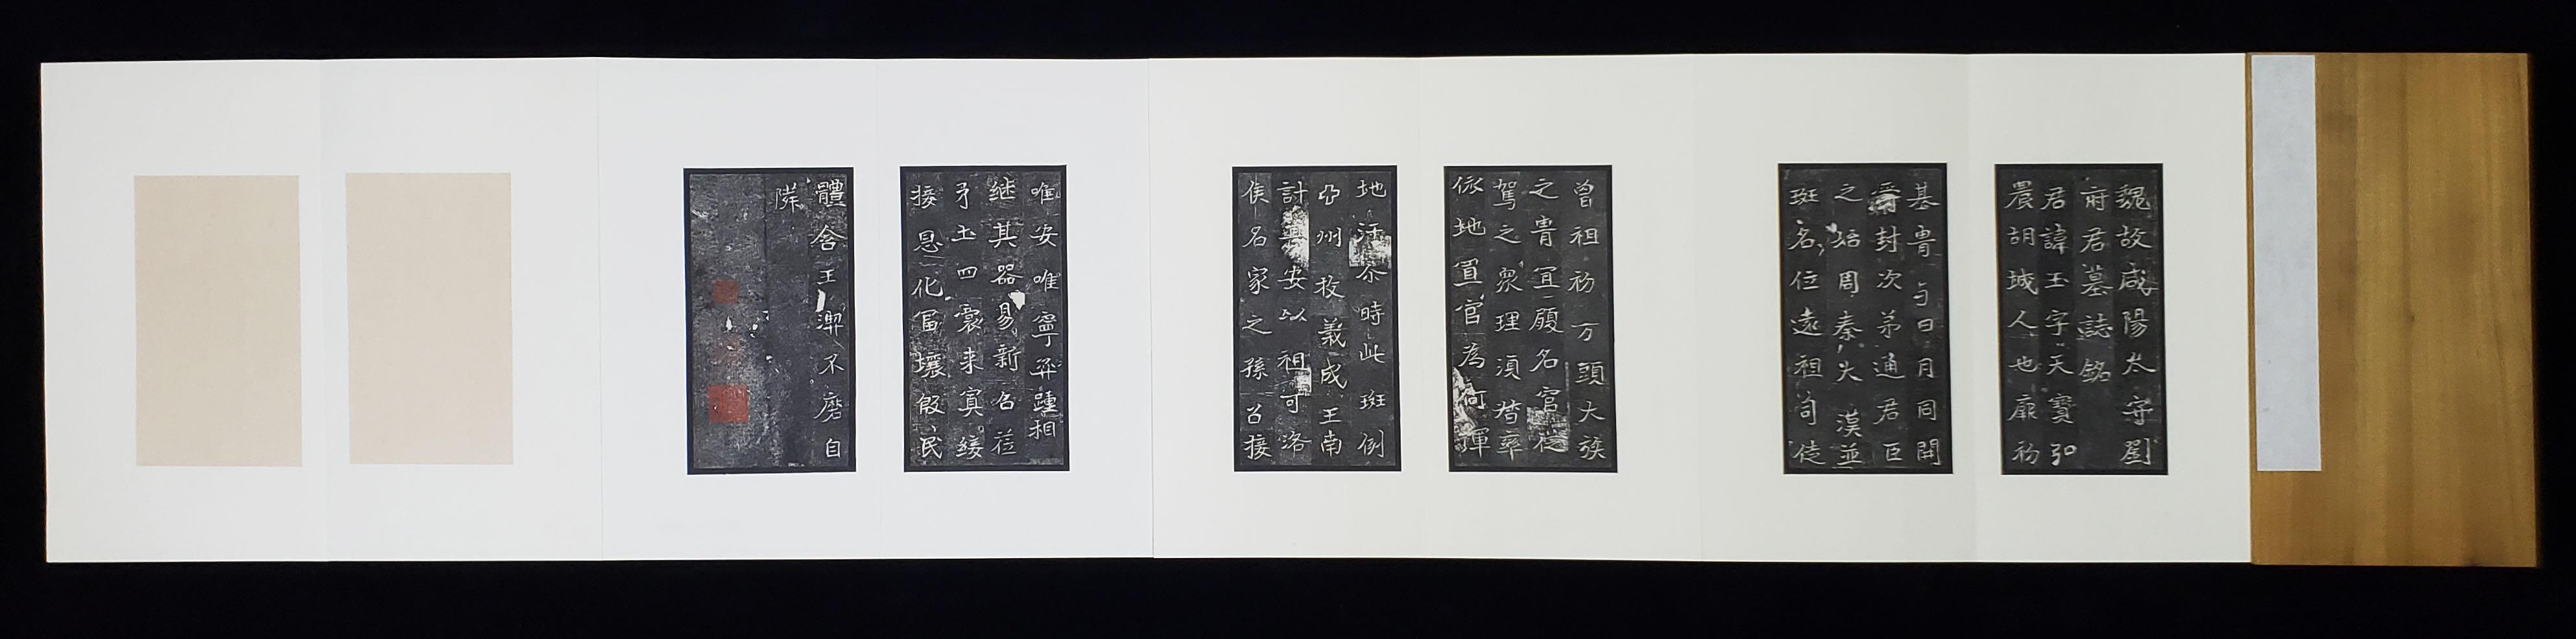 魏故咸陽太守劉
府君墓誌銘
君諱玉字天寶弘
農胡城人也廠初
基冑与日月同開
爵封次弟通君臣
之始周秦大漢並
班名位遠祖司徒
曾祖初万頭大族
之冑宜履名官從
駕之衆理須督率
依地置官為何渾
地汗尒時此班例
亞州牧義成王南
計與安以祖可洛
侯名家之孫召接
唯安唯寧 踵相
継其器易新名莅
牙土四裹来賓綏
接恩化 壤殷民
體含王澤不磨自
隣